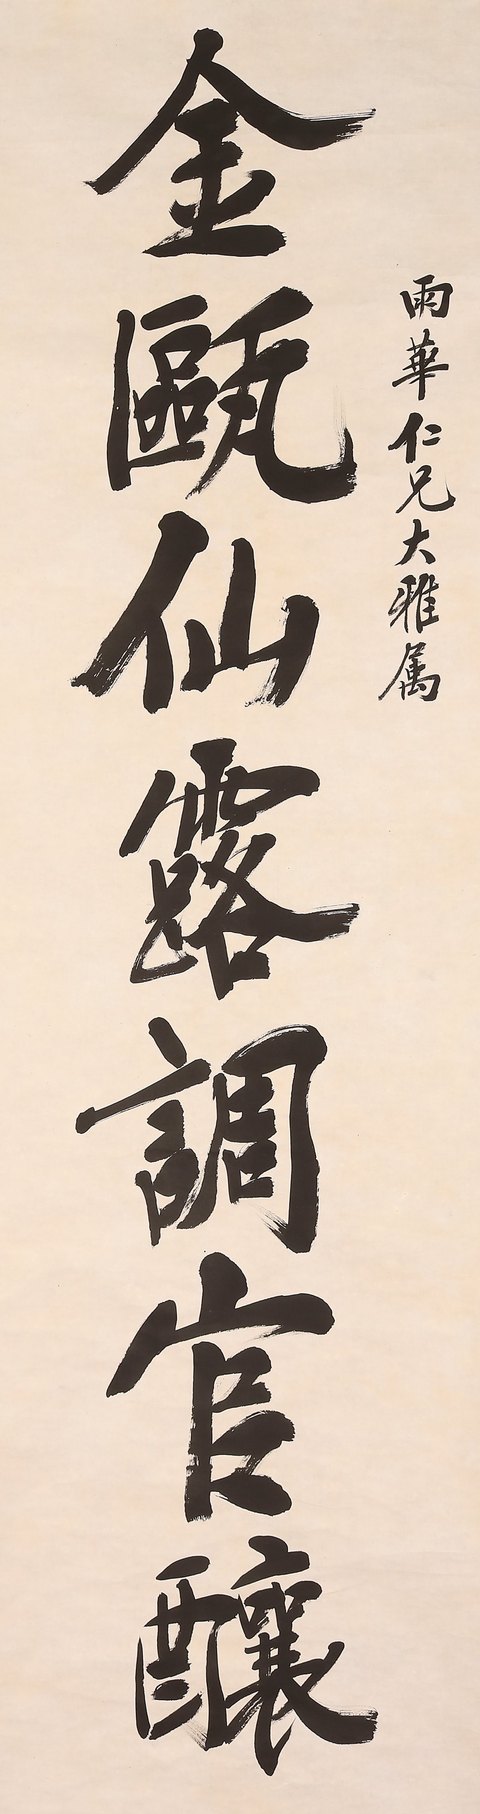 雨華仁兄大雅属
金甌仙露調官釀